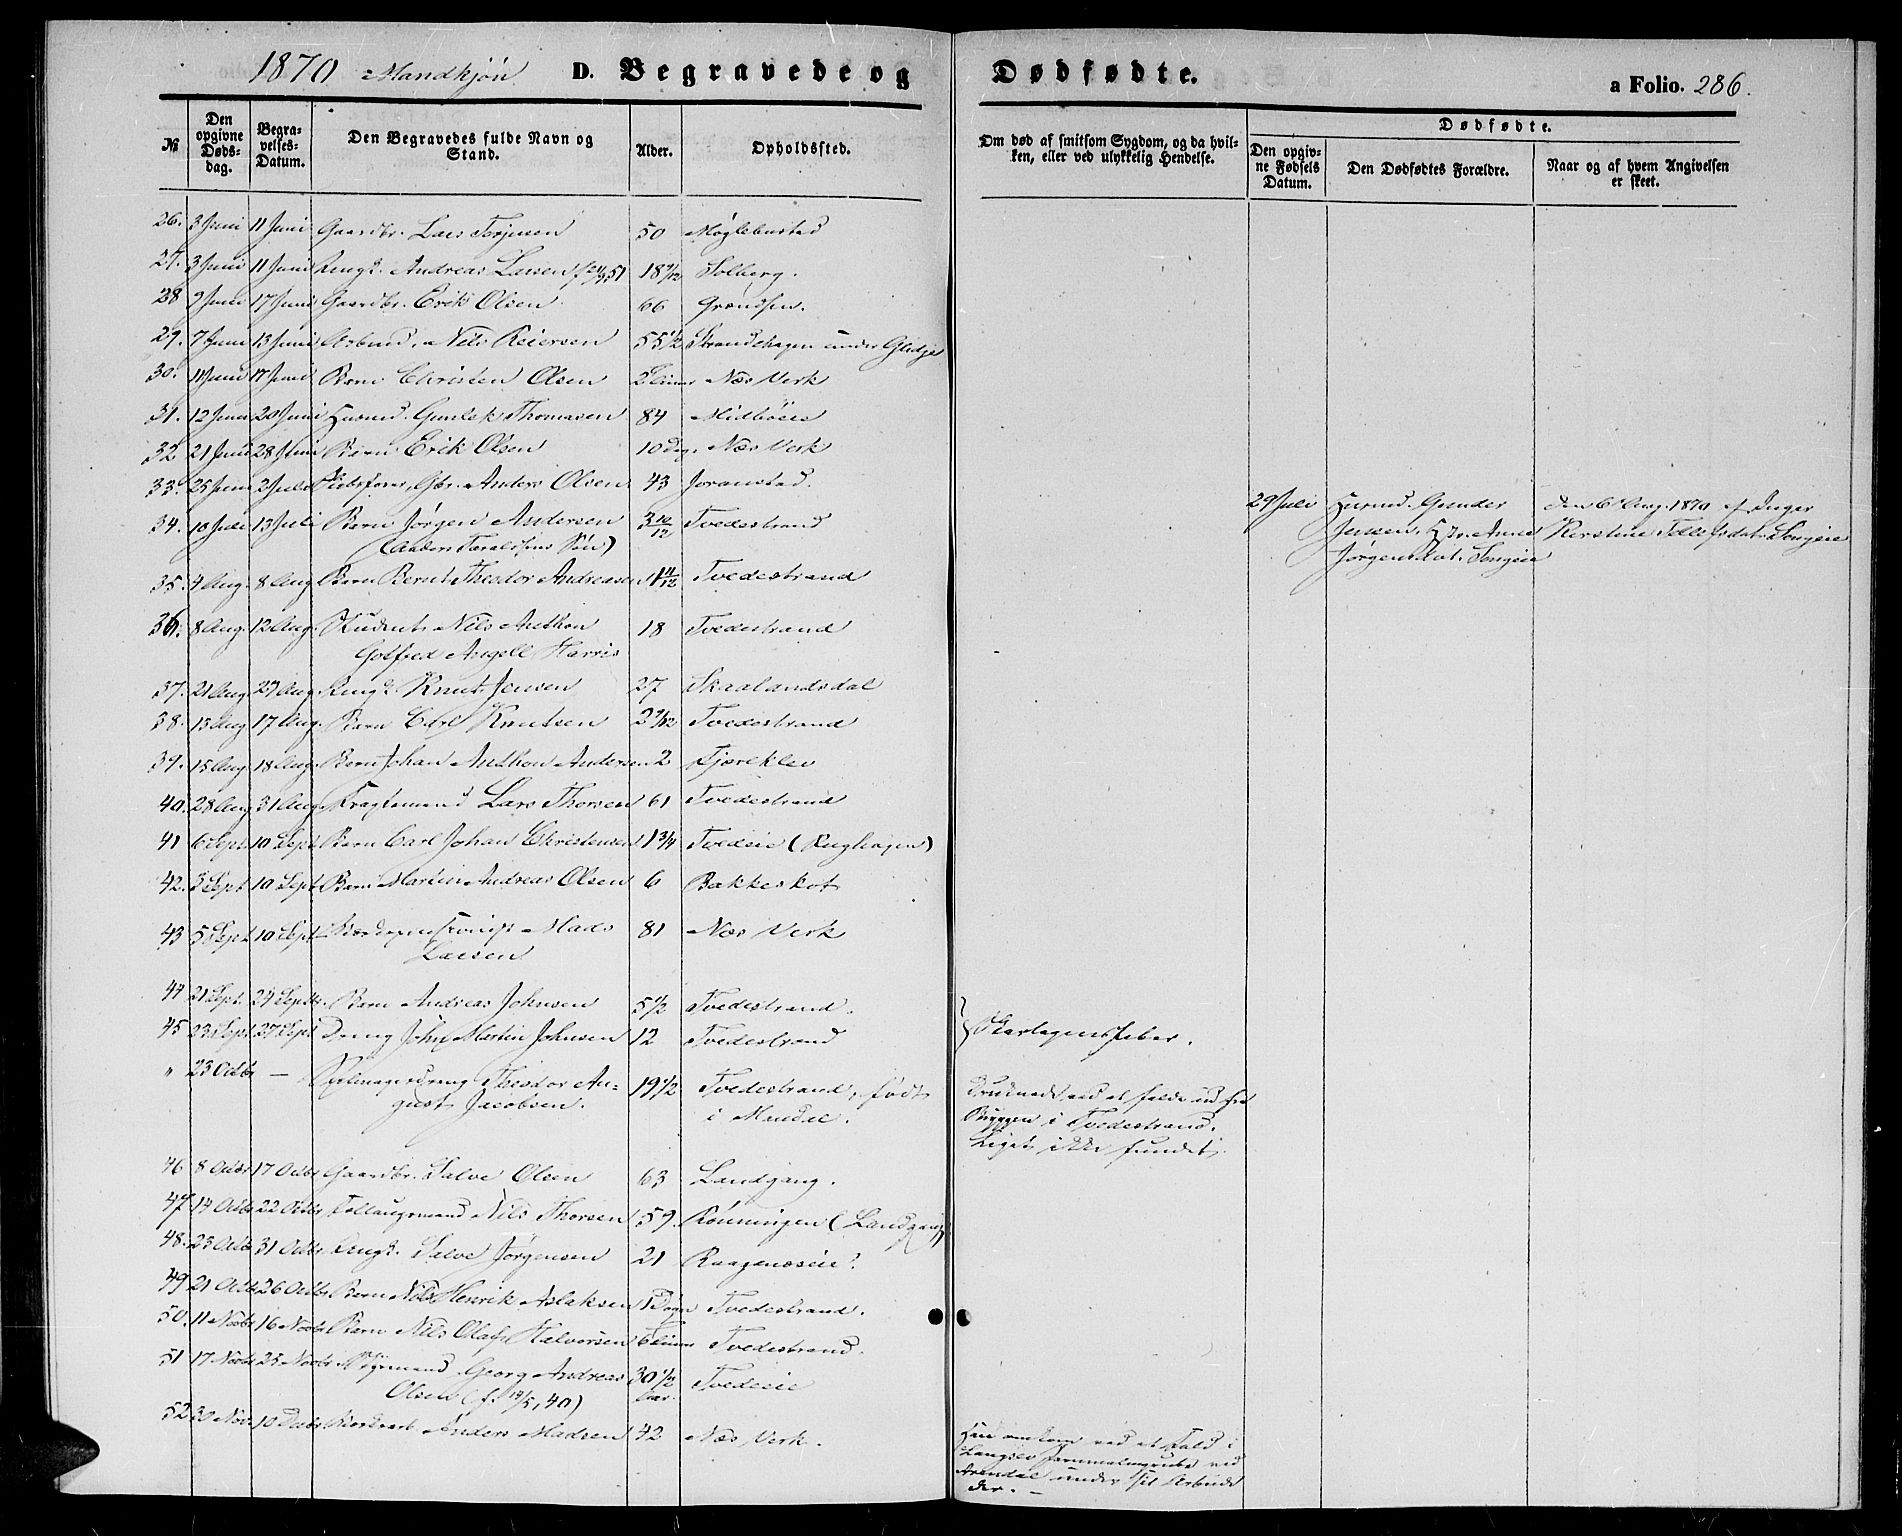 1870 Mandkjøn D. Begravede og Dødfødte. a Folio. 286.
№
Den opgivne Døds-dag.
Begra-velses-Datum.
Den Begravedes fulde Navn og Stand.
Alder.
Opholdssted.
Om død af smitsom Sygdom, og da hvil-ken, eller ved ulykkelig Hendelse.
Dødfødte.
Den opgiv-ne Fødsels Datum.
Den Dødfødtes Forældre.
Naar og af hvem Angivelsen er skeet.
26. 3 Juni 11 Juni Gaardbr. Lars Terjusen 50 Møglebustad
27. 3 Juni 11 Juni Ungk. Andreas Larsen 18 9/12 Solberg.
28 9 Juni 17 Juni Gaardbr. Erik Olsen 66
29. 7 Juni 13 Juni Nils Reiersen 55 1/2 Strandhagen under
30. 11 Juni 17 Juni Barn Christen Olsen Næs Verk
31. 12 Juni 20 Juni Husmd. Gunlek Thomasen 84 Midbøeie
32 21 Juni 28 Juni Barn Erik Olsen 10 Dg. Næs Verk
33. 25 Juni 2 Juli Gbr. Anders Olsen 43 Joranstad.
34. 10 Juli 13 Juli Barn Jørgen Andersen 3 10/12 Tvedestrand
(Anders Taraldsens Søn)
29 Juli Husmd. Gunder Jensen, Hstr. Anne Jørgensdat. Songeie
den 6 Aug. 1870 af Inger Kerstine Tellefsdat. Songeie
35. 4 Aug. 8 Aug Barn Bernt Theodor Andreasen 1 11/12 Tvedestrand
36. 8 Aug. 12 Aug. Student Nils Anthon 18 Tvedestrand
Gotfred Angell Harris
37. 21 Aug 27 Aug. Ungk. Knut Jensen 27 Skaalandsdal
38. 13 Aug 17 Aug. Barn Carl Knutsen 2 9/12 Tvedestrand
39. 15 Aug. 18 Aug. Barn Johan Anthon Andersen 2 Fjæreklev
40. 28 Aug 31 Aug Fragtemand Lars Thorsen 61 Tvedestrand
41 6 Sept. 10 Sept. Barn Carl Johan Christensen 1 3/4 Tvedeie (Rughagen)
42. 3 Sept. 10 Sept. Barn Martin Andreas Olsen 6 Bakkeskot
43 5 Sept. 10 Sept. Mads 81 Næs Verk
Larsen
44 21 Sept. 24 Septb. Barn Andreas Johnsen 5 1/2 Tvedestrand.
45 23 Sept 27 Sept Dreng John Martin Johnsen 12 Tvedestrand } Skarlagensfeber.
" 23 Octbr — Theodor Au= 19 1/2 Tvedestrand, født
gust Jacobsen. i Mandal.
Druknede ved at falde ud fra
Bryggen i Tvedestrand.
Liget ikke fundet.
46 8 Octbr 17 Octbr Gaardbr. Salve Olsen 63 Landgang.
47 14 Octbr 22 Octbr Føllaugsmand Nils Thorsen 59. Rønningen (Landgang)
48. 23 Octb 31 Octb. Ungk. Salve Jørgensen 21 Raagenæseie?
49 21 Octb 26 Octb. Barn Nils Henrik Aslaksen 1 Døgn Tvedestrand.
50. 11 Novbr 16 Novbr Barn Nils Olaf Halvorsen 6 Timer Tvedestrand.
51 17 Novbr 25 Novbr Georg Andreas 30 1/2 Tvedeie
Olsen (f. 14/5, 40) Aar.
52 30 Nov. 10 Decbr Anders Madsen 42 Næs Verk.
Han omkom ved et Fald i
Langsev Jernmalmgrube ved
Arendal under sit Arbeide
der. —